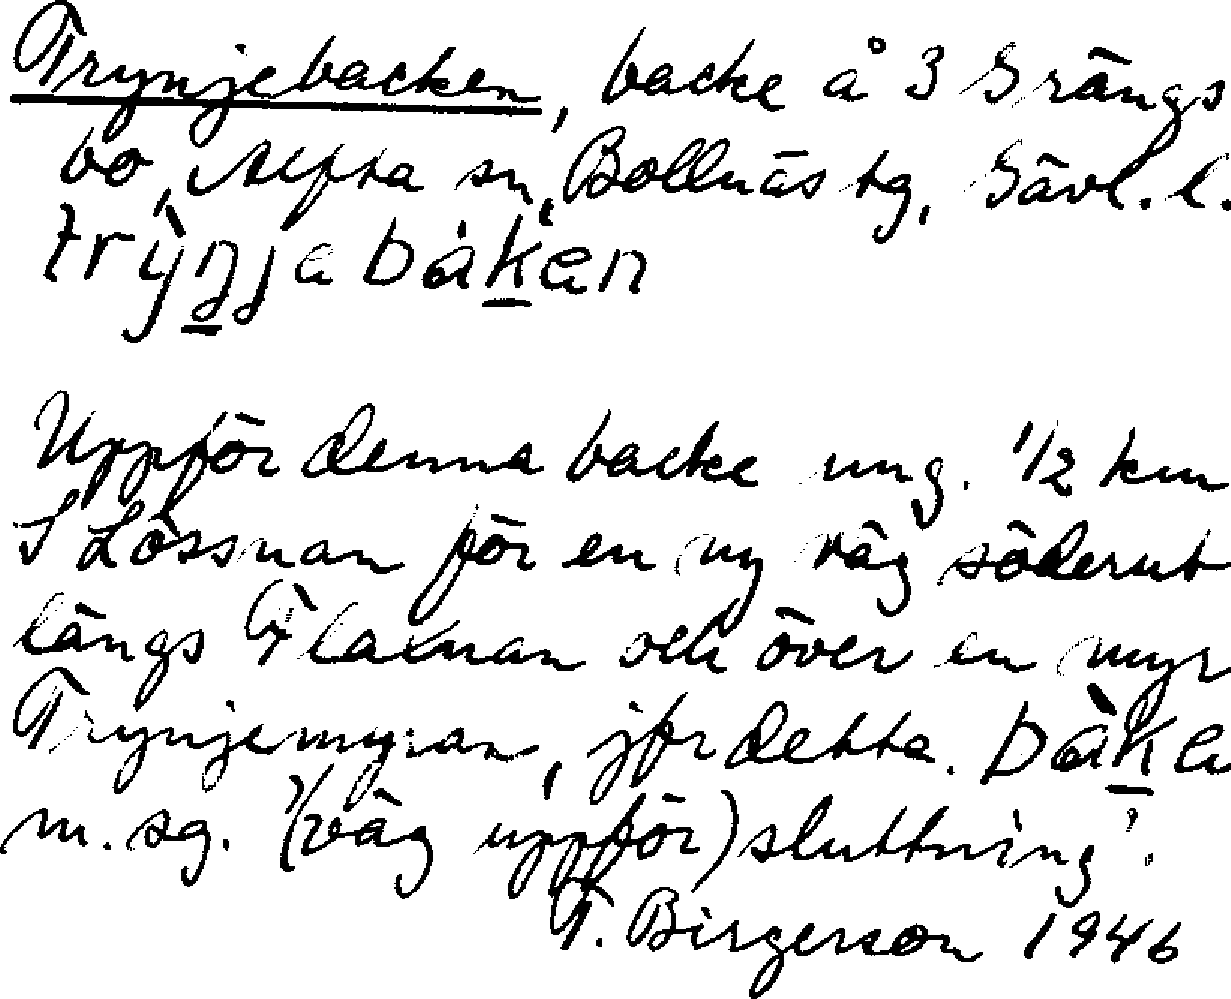 Trynjebacken, backe å 3 Grängs
bo, Alfta sn, Bollnäs tg, Gävl. l.
trỳn̠jabàk̠an
Uppför denna backe ung. 1/2 km
S Lössnan för en ny väg söderut
längs Flaxnan och över en myr
Trynjemyran, jfr detta. bàk̠a
m. sg. '(väg uppför) sluttning'.
T. Birgerson 1946